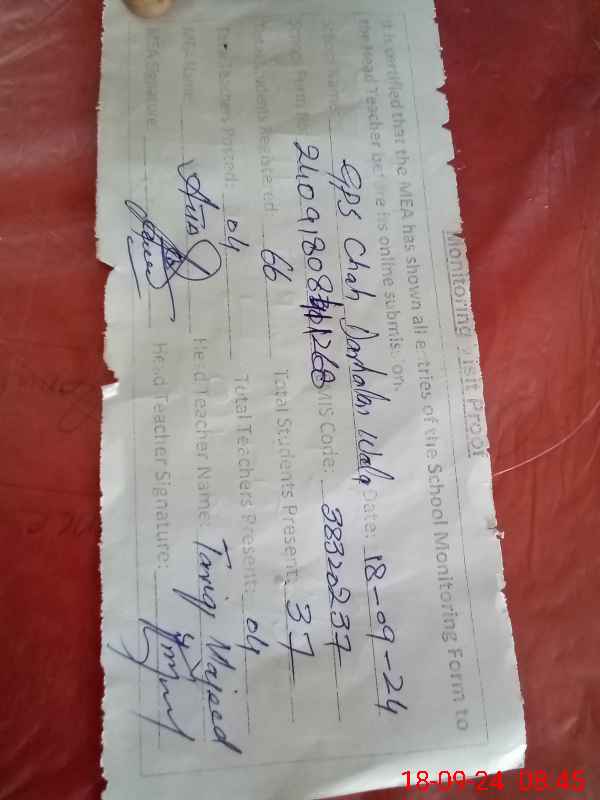 Monitoring Visit Proof
It is certified that the MEA has shown all entries of the School Monitoring Form to
the Head Teacher before his online submission.
School Name: GPS Chah Wala Date: 18-09-24
School Form No: EMIS Code: 38320237
Total Students Registered: 66 Total Students Present: 37
Total Teachers Posted: 04 Total Teachers Present: 04
MEA Name: Head Teacher Name: Tariq Majeed
MEA Signature: Head Teacher Signature:
18-09-24 08:45